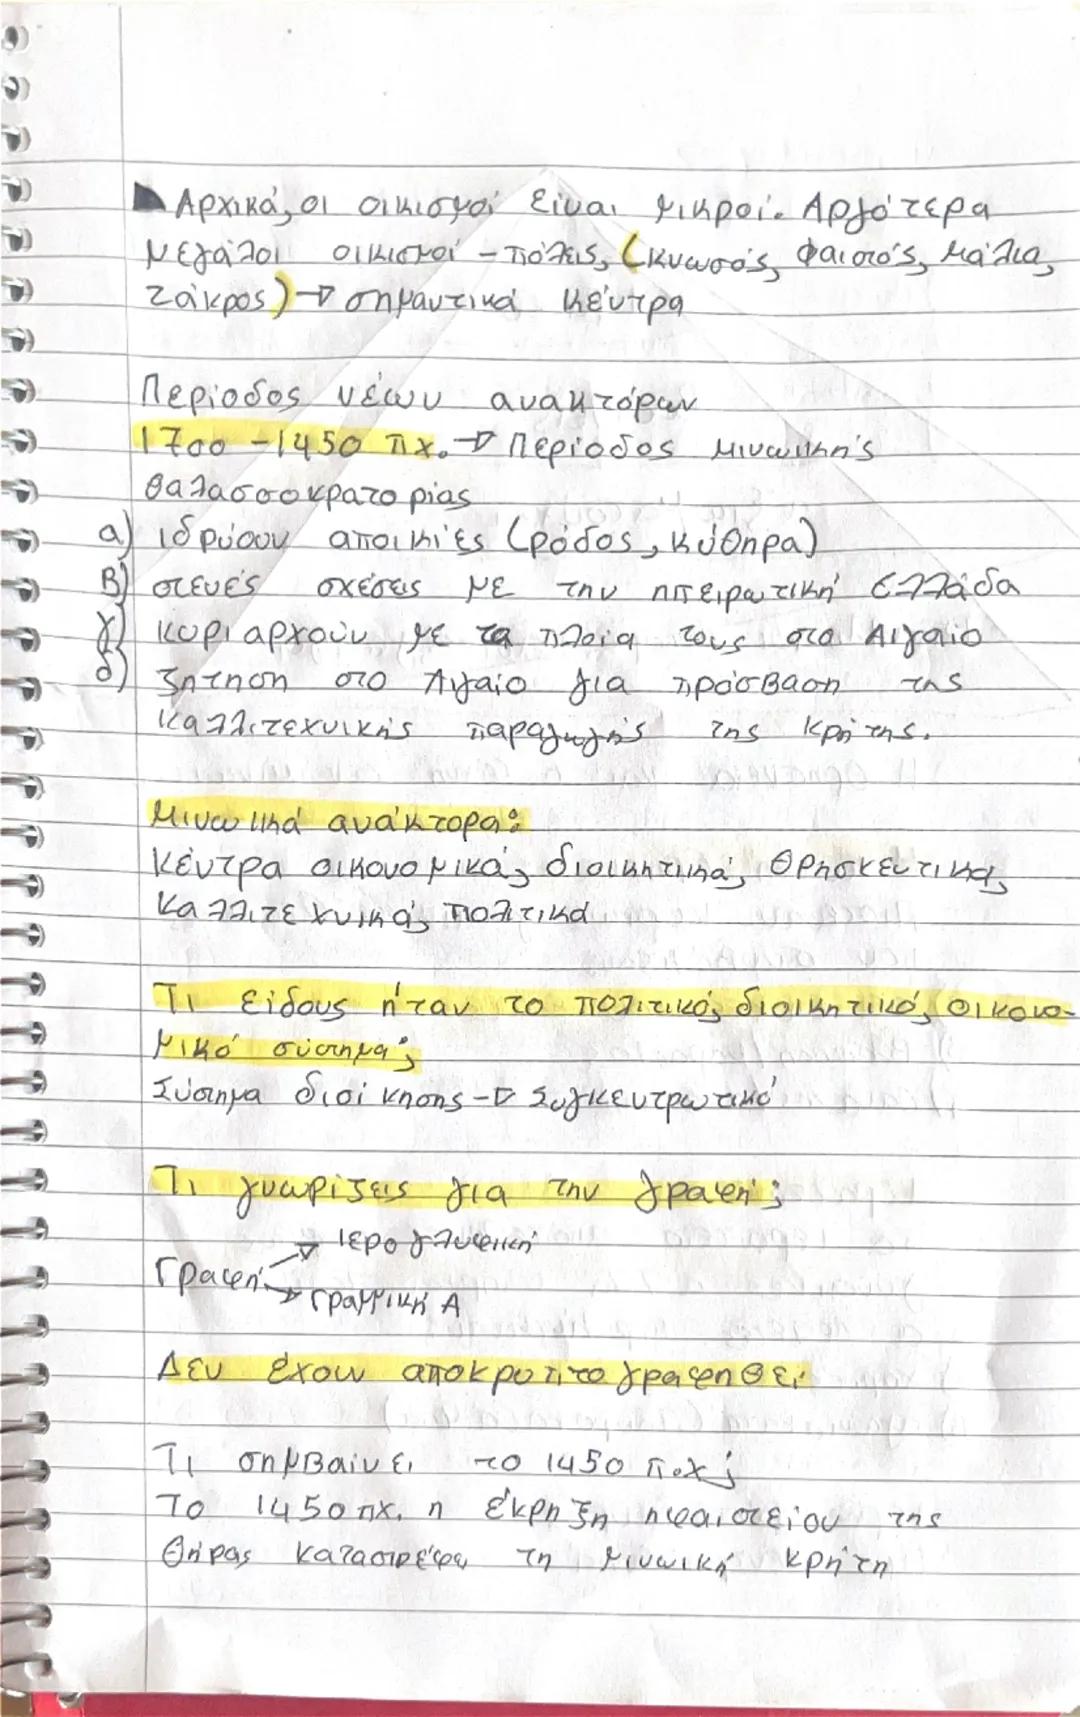 Αρχικά, οι οικισμοί είναι μικροί. Αργότερα
μεγάλοι οικισμοί - πόλεις, (Κνωσός, Φαιστός, Μάλια,
Ζάκρος) → σημαντικά κέντρα
Περίοδος νέων ανακτόρων
1700 - 1450 πχ. → Περίοδος Μινωικής
θαλασσοκρατορίας
α) ιδρύουν αποικίες (Ρόδος, Κύθηρα)
β) στενές σχέσεις με την ηπειρωτική Ελλάδα
γ) κυριαρχούν με τα πλοία τους στο Αιγαίο
δ) ζήτηση στο Αιγαίο για πρόσβαση της
καλλιτεχνικής παραγωγής της Κρήτης.
Μινωικά ανάκτορα:
Κέντρα οικονομικά, διοικητικά, θρησκευτικά,
καλλιτεχνικά, πολιτικά
Τι είδους ήταν το πολιτικό, διοικητικό, οικονο-
μικό σύστημα;
Σύστημα διοίκησης → Συγκεντρωτικό
Τι γνωρίζεις για την γραφή;
→ Ιερογλυφική
Γραφή
→ Γραμμική Α
Δεν έχουν αποκρυπτογραφηθεί
Τι σημβαίνει το 1450 π.χ;
Το 1450 πχ. η έκρηξη ηφαιστείου της
Θήρας κατάστρεψε τη Μινωική Κρήτη